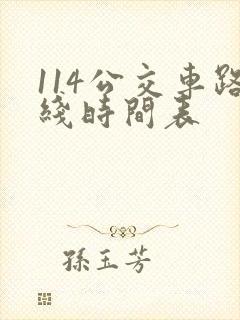 114公交車路
綫時間表
孫玉芳